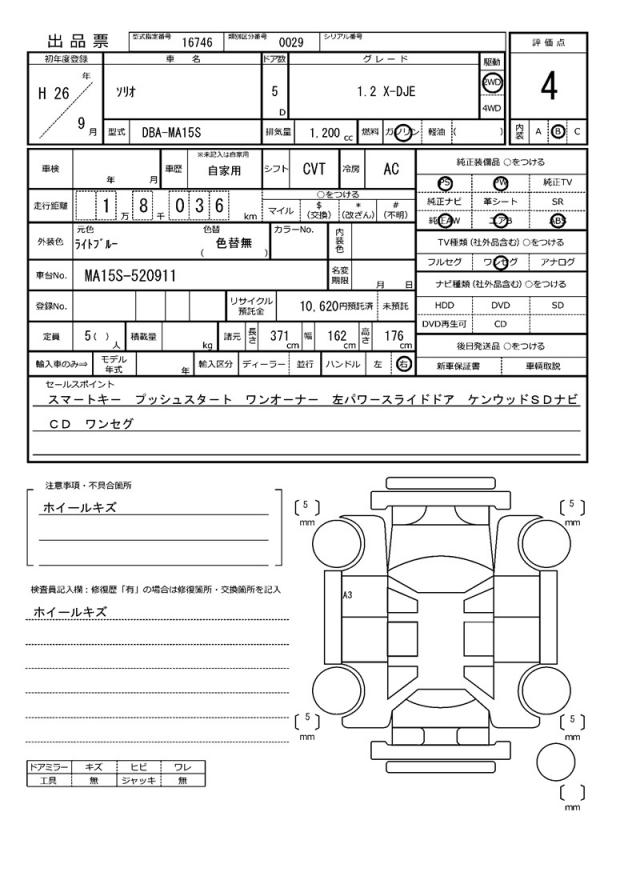 出品票 型式指定番号 16746 類別区分番号 0029 シリアル番号
評価点
4
内装 A B C
初年度登録 車名 ドア数 グレード 駆動
H 26 年 9 月 ソリオ 5 D 1.2 X-DJE 2WD 4WD
型式 DBA-MA15S 排気量 1.200 cc 燃料 ガソリン 軽油 ( )
車検 年 月 車歴 ※未記入は自家用 自家用 シフト CVT 冷房 AC
走行距離 1 万 8 千 0 3 6 km
○をつける
マイル $ (交換) * (改ざん) # (不明)
外装色 元色 ライトブルー 色替 ( 色替無 ) カラーNo. 内装色
車台No. MA15S-520911 名変期限 月 日
登録No. リサイクル預託金 10,620円預託済 未預託
定員 5( ) 人 積載量 kg 諸元 長さ 371 cm 幅 162 cm 高さ 176 cm
輸入車のみ⇒ モデル年式 年 輸入区分 ディーラー 並行 ハンドル 左 右
純正装備品 ○をつける
PS PW 純正TV
純正ナビ 革シート SR
純正AW エアB ABS
TV種類(社外品含む)○をつける
フルセグ ワンセグ アナログ
ナビ種類(社外品含む)○をつける
HDD DVD SD
DVD再生可 CD
後日発送品 ○をつける
新車保証書 車輌取説
セールスポイント
スマートキー プッシュスタート ワンオーナー 左パワースライドドア ケンウッドSDナビ
CD ワンセグ
注意事項・不具合箇所
ホイールキズ
検査員記入欄:修復歴「有」の場合は修復箇所・交換箇所を記入
ホイールキズ
ドアミラー キズ ヒビ ワレ
工具 無 ジャッキ 無
5 mm
5 mm
A3
5 mm
5 mm
mm